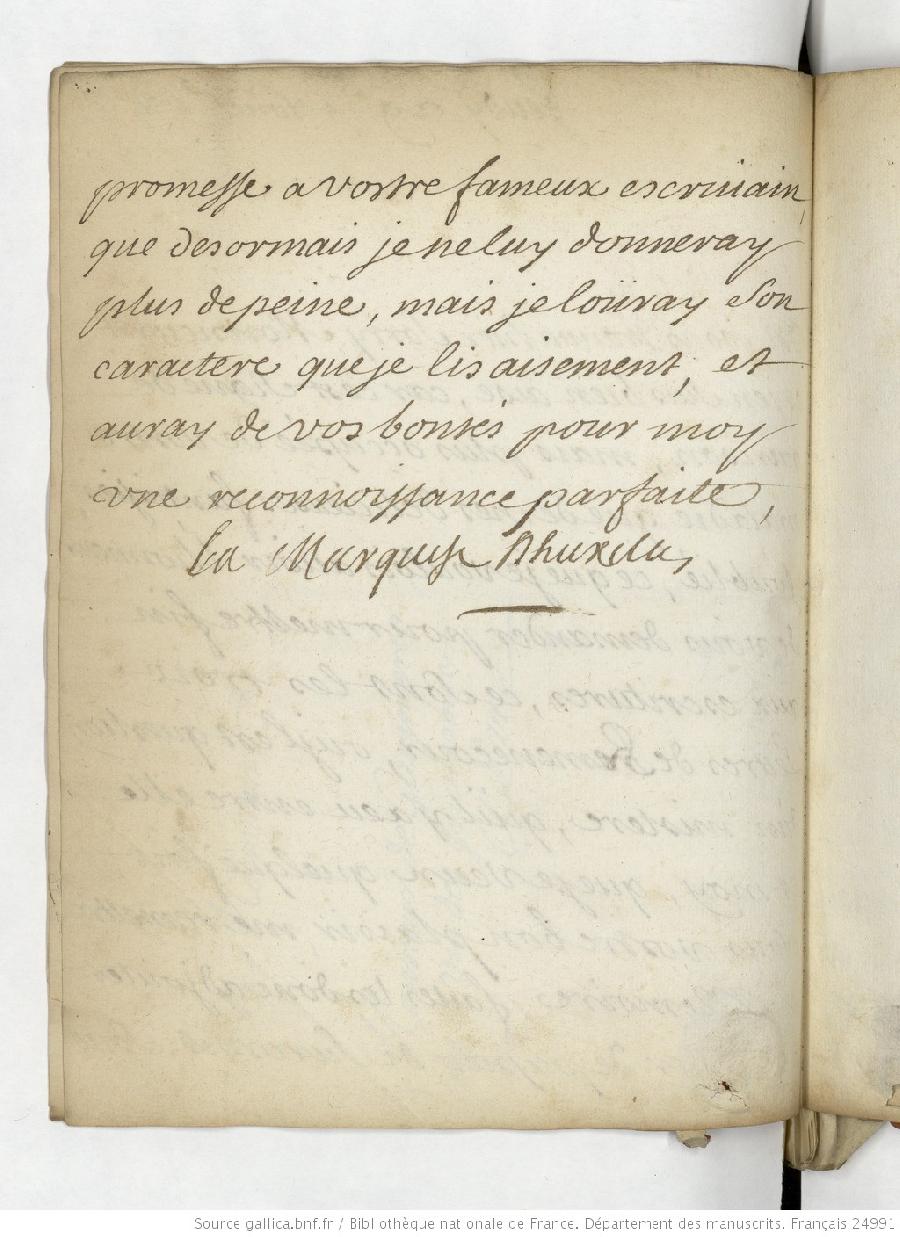 promesse a vostre fameux escriuain,
que desormais je ne luy donneray
plus de peine, mais je loüray son
caractere que je lis aisement, et
auray de vos bontés pour moy
vne reconnoissance parfaite,
la Marquise Dhuxelles
Source gallica.bnf.fr / Bibliothèque nationale de France. Département des manuscrits. Français 24991